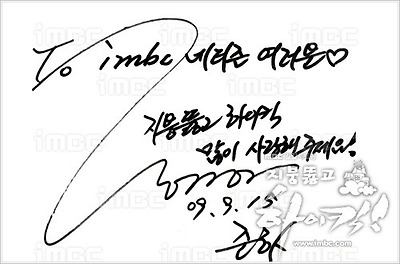 To imbc 네티즌 여러분♡
지붕뚫고 하이킥
많이 사랑해주세요!
09.9.15
지붕뚫고
하이킥!
www.imbc.com
imBC